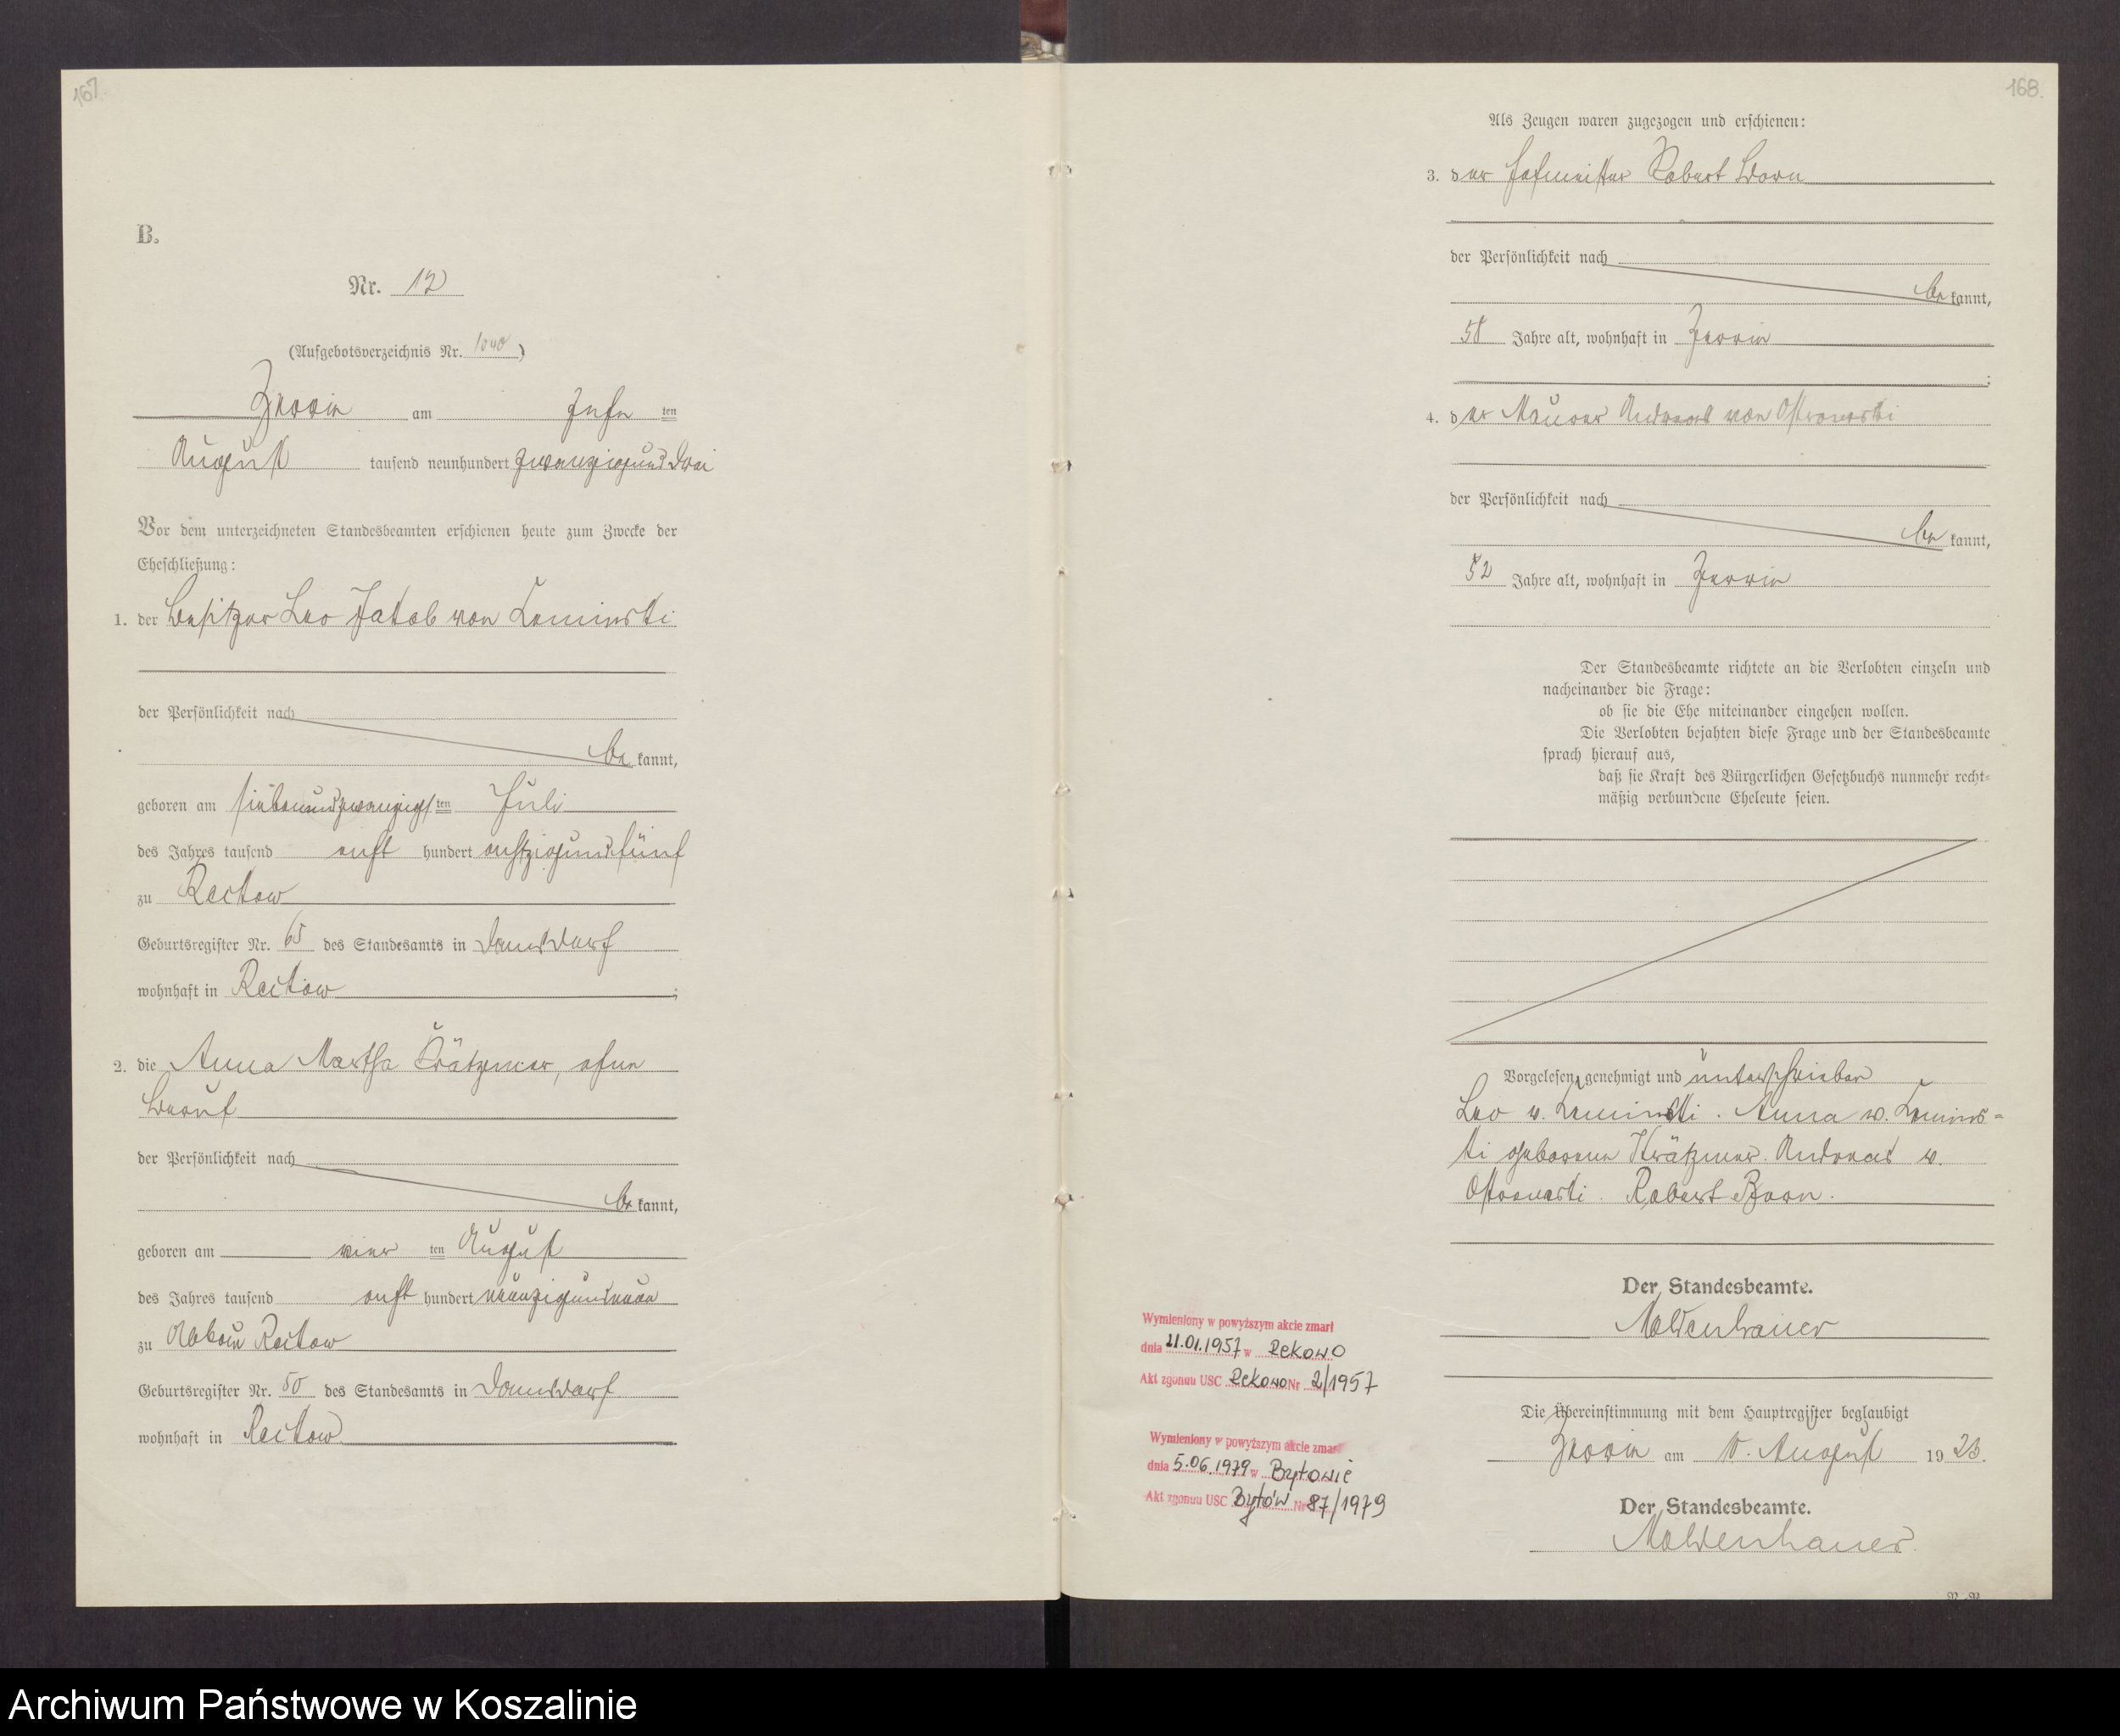 167.
B.
Nr. 12
(Aufgebotsverzeichnis Nr. )
Zerrin am zehn ten
August tausend neunhundert zwanzigunddrei
Vor dem unterzeichneten Standesbeamten erschienen heute zum Zwecke der
Eheschließung:
1. der Besitzer Leo Jakob von Kominski
der Persönlichkeit nach
be kannt,
geboren am siebenundzwanzigs ten Juli
des Jahres tausend acht hundert achtzigundfünf
zu Reckow
Geburtsregister Nr. 65 des Standesamts in Damsdorf
wohnhaft in Reckow ;
2. die Anna Martha Krätzmer, ohne
Beruf
der Persönlichkeit nach
be kannt,
geboren am vier ten August
des Jahres tausend acht hundert neunzigundneun
zu Abbau Reckow
Geburtsregister Nr. 50 des Standesamts in Damsdorf
wohnhaft in Reckow
168.
Als Zeugen waren zugezogen und erschienen:
3. der Hofmeister Robert Born
der Persönlichkeit nach
be kannt,
Jahre alt, wohnhaft in Zerrin
;
4. der Maurer Andreas von Ostrowski
der Persönlichkeit nach
be kannt,
52 Jahre alt, wohnhaft in Zerrin
Der Standesbeamte richtete an die Verlobten einzeln und
nacheinander die Frage:
ob sie die Ehe miteinander eingehen wollen.
Die Verlobten bejahten diese Frage und der Standesbeamte
sprach hierauf aus,
daß sie Kraft des Bürgerlichen Gesetzbuchs nunmehr recht-
mäßig verbundene Eheleute seien.
Vorgelesen, genehmigt und unterschrieben
Leo v. Kominski. Anna v. Komins=
ki geborene Krätzmer. Andreas v.
Ostrowski. Robert Born.
Der Standesbeamte.
Moldenhauer
Die Übereinstimmung mit dem Hauptregister beglaubigt
Zerrin am August 1923.
Der Standesbeamte.
Moldenhauer.
Wymieniony w powyższym akcie zmarł
dnia 21.01.1957 w Rekowo
Akt zgonuu USC Rekowo Nr 2/1957
Wymieniony w powyższym akcie zmarł
dnia 5.06.1979 w Bytowie
Akt zgonuu USC Bytów Nr 87/1979
Archiwum Państwowe w Koszalinie